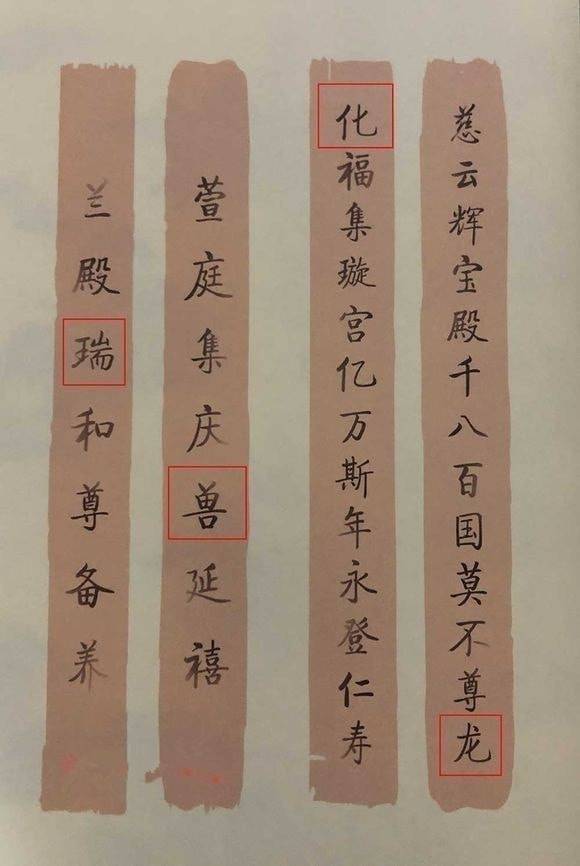 慈云辉宝殿千八百国莫不尊龙
化福集璇宫亿万斯年永登仁寿
萱庭集庆兽延禧
兰殿瑞和尊备养